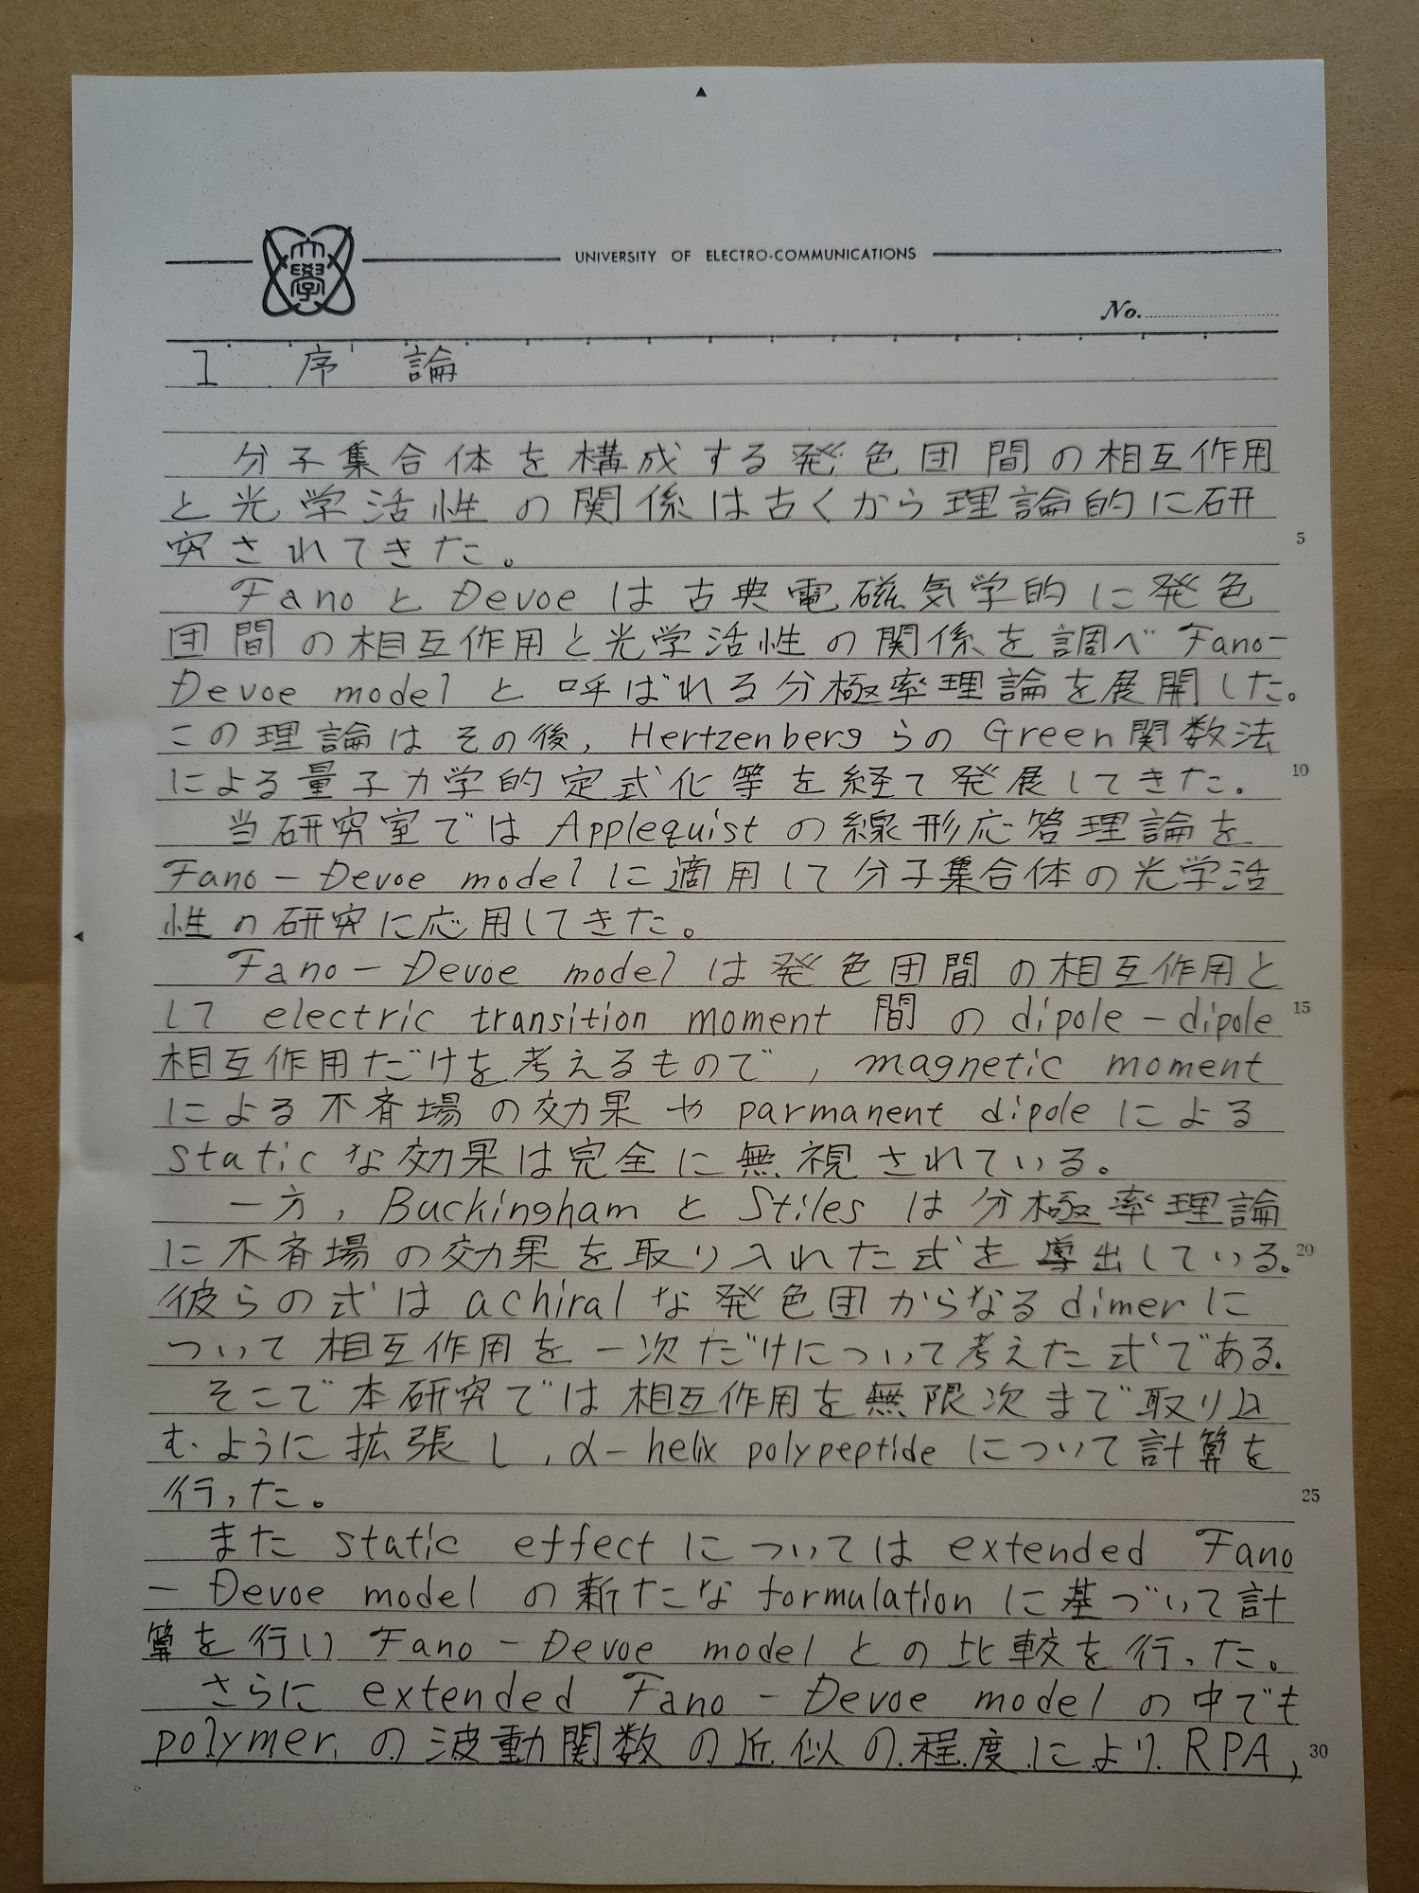 大學
UNIVERSITY OF ELECTRO-COMMUNICATIONS
No.
1 序論
分子集合体を構成する発色団間の相互作用
と光学活性の関係は古くから理論的に研
究されてきた。
FanoとDevoeは古典電磁気学的に発色
団間の相互作用と光学活性の関係を調べFano-
Devoe modelと呼ばれる分極率理論を展開した。
この理論はその後, HertzenbergらのGreen関数法
による量子力学的定式化等を経て発展してきた。
当研究室ではApplequistの線形応答理論を
Fano-Devoe modelに適用して分子集合体の光学活
性の研究に応用してきた。
Fano-Devoe modelは発色団間の相互作用と
して electric transition moment 間の dipole-dipole
相互作用だけを考えるもので, magnetic moment
による不斉場の効果や parmanent dipole による
static な効果は完全に無視されている。
一方, Buckingham と Stiles は分極率理論
に不斉場の効果を取り入れた式を導出している。
彼らの式は achiral な発色団からなる dimer に
ついて相互作用を一次だけについて考えた式である。
そこで本研究では相互作用を無限次まで取り込
むように拡張し, α-helix polypeptide について計算を
行った。
また static effect については extended Fano
-Devoe model の新たな formulation に基づいて計
算を行い Fano-Devoe model との比較を行った。
さらに extended Fano-Devoe model の中でも
polymer の波動関数の近似の程度により RPA,
5
10
15
20
25
30